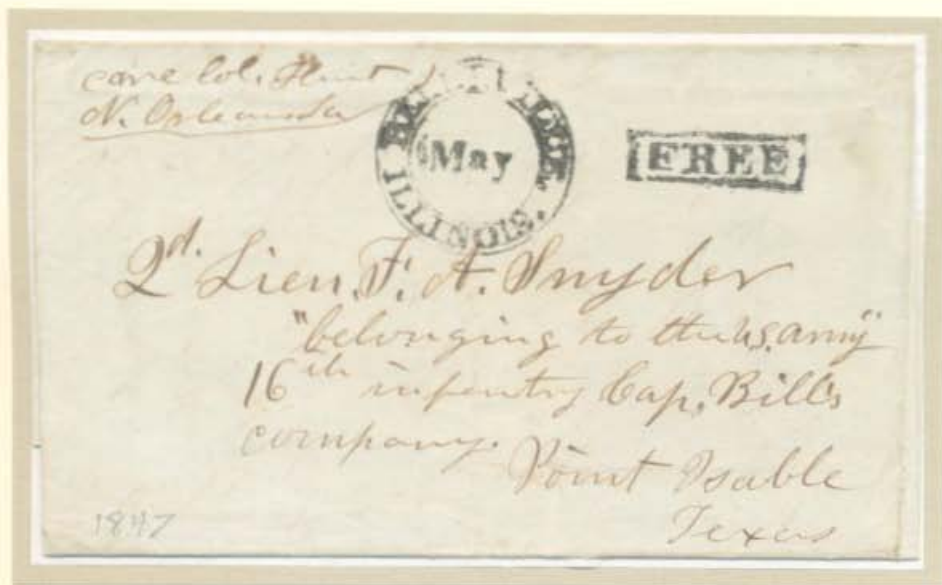 care Col. Hunt
N. Orleans La
BELLEVILLE.
May
ILLINOIS.
FREE
2d. Lieu. F. A. Snyder
"belonging to the U.S. army"
16th infentry Cap, Bill's
company.
Point Isable
Texas
1847